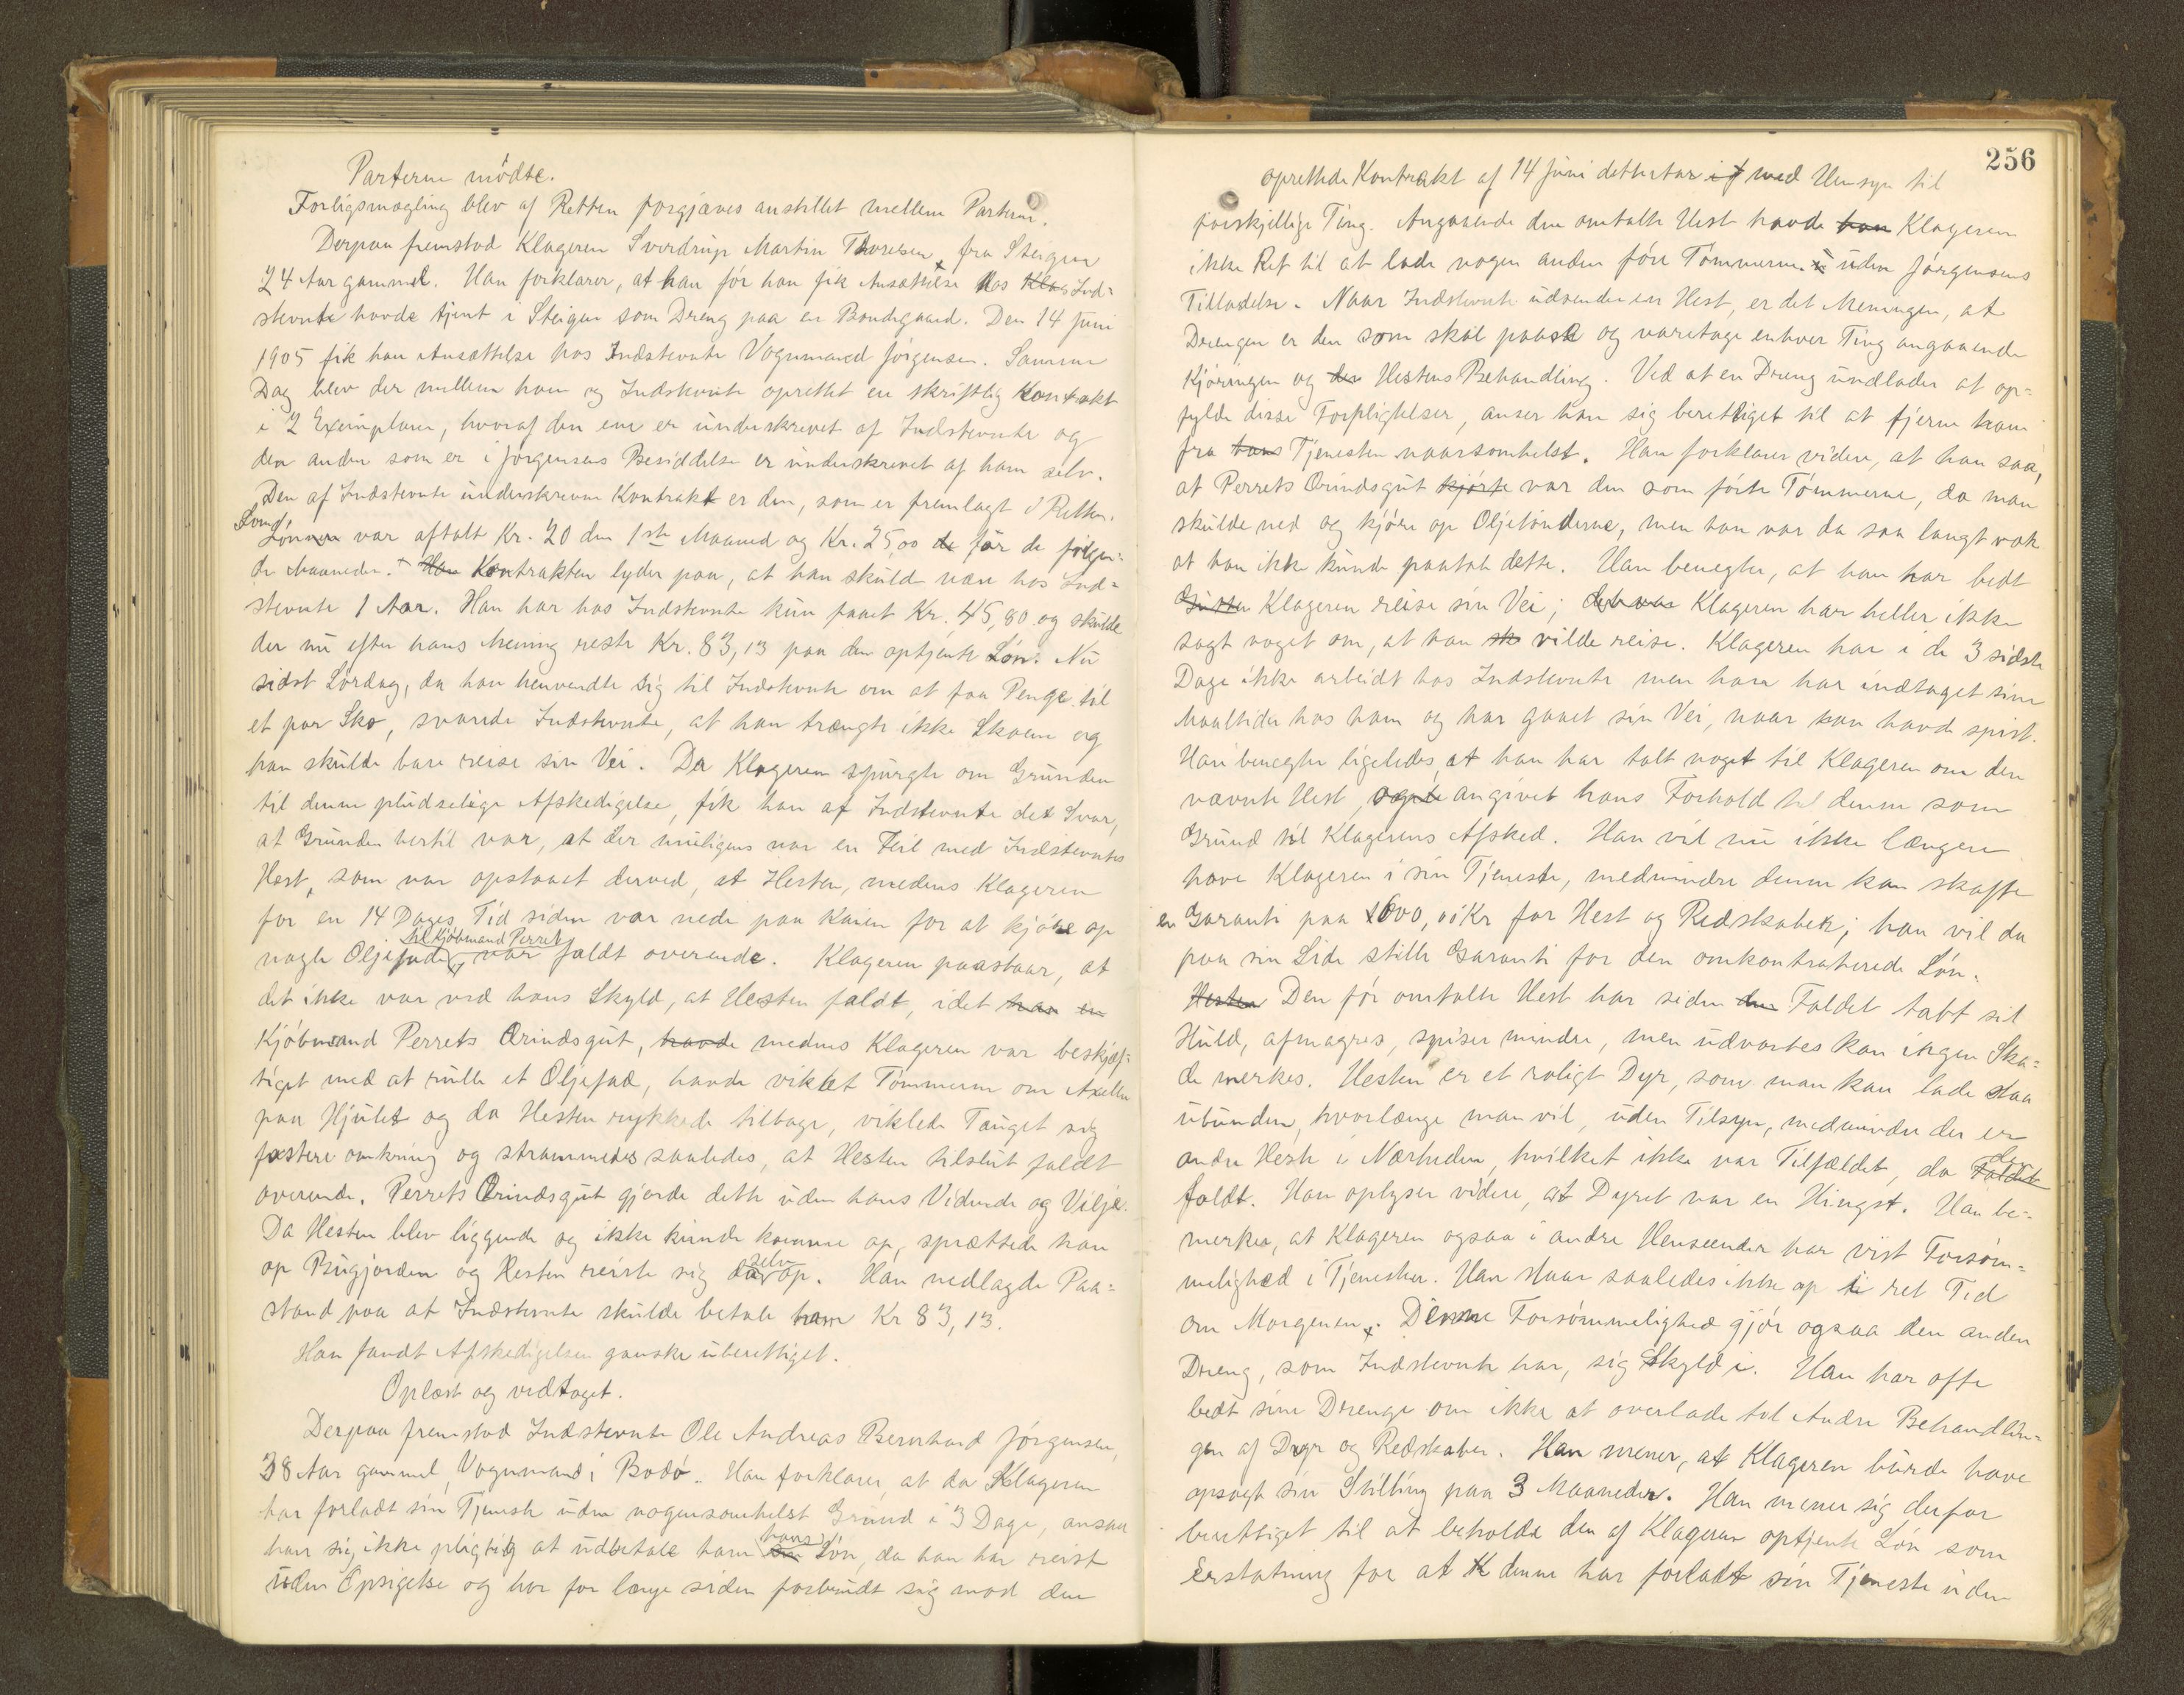 Parterne mødte.
Forligsmægling blev af Retten forgjæves anstillet mellem Parterne.
Derpaa fremstod Klageren Sverdrup Martin Thoresen fra Steigen
24 Aar gammel. Han forklarer, at han før han fik Ansættelse hos Klag Ind-
stevnte havde tjent i Steigen som Dreng paa en Bondegaard. Den 14 Juni
1905 fik han Ansættelse hos Indstevnte Vognmand Jørgensen. Samme
Dag blev der mellem ham og Indstevnte oprettet en skriftlig Kontrakt
i 2 Exemplarer, hvoraf den ene er underskrevet af Indstevnte og
den anden som er i Jørgensens Besiddelse er underskrevet af ham selv.
Den af Indstevnte underskrevne Kontrakt er den, som er fremlagt i Retten.
Som Lønnen var aftalt Kr. 20 den 1ste Maaned og Kr. 25,00 de for de følgen-
de Maaneder. Han Kontrakten lyder paa, at han skulde være hos Ind-
stevnte 1 Aar. Han har hos Indstevnte kun faaet Kr. 45,80 og skulde
der nu efter hans Mening reste Kr. 83,13 paa den optjente Løn. Nu
sidst Lørdag, da han henvendte sig til Indstevnte om at faa Penge til
et par Sko, svarede Indstevnte, at han trængte ikke Skoene og
han skulde bare reise sin Vei. Da Klageren spurgte om Grunden
til denne pludselige Afskedigelse, fik han af Indstevnte det Svar,
at Grunden hertil var, at der muligens var en Feil med Indstevntes
Hest, som var opstaaet derved, at Hesten, medens Klageren
for en 14 Dages Tid siden var nede paa Kaien for at kjøre op
til Kjøbmand Perret
nogle Oljefade, var faldt overende. Klageren paastaar, at
det ikke var ved hans Skyld, at Hesten faldt, idet han en
Kjøbmand Perrets Ærindsgut, havde medens Klageren var beskjæf-
tiget med at rulle et Oljefad, havde viklet Tømmerne om Axelen
paa Hjulet og da Hesten rykkede tilbage, viklede Tauget sig
fastere omkring og strammedes saaledes, at Hesten tilslut faldt
overende. Perrets Ærindsgut gjorde dette uden hans Vidende og Vilje.
Da Hesten blev liggende og ikke kunde komme op, sprættede han
op Bugjorden og Hesten reiste sig da selv op. Han nedlagde Paa-
stand paa at Indstevnte skulde betale ham Kr 83,13.
Han fandt Afskedigelsen ganske uberettiget.
Oplæst og vedtaget.
Derpaa fremstod Indstevnte Ole Andreas Bernhard Jørgensen,
38 Aar gammel, Vognmand i Bodø. Han forklarer, at da Klageren
har forladt sin Tjeneste uden nogensomhelst Grund i 3 Dage, ansaa
han sig ikke pligtig at udbetale ham sin hans Løn, da han har reist
uden Opsigelse og har for længe siden forbrudt sig mod den
256
oprettede Kontrakt af 14 Juni dettestaar if med Hensyn til
forskjellige Ting. Angaaende den omtalte Hest havde han Klageren
ikke Ret til at lade nogen anden føre Tømmerne uden Jørgensens
Tilladelse. Naar Indstevnte udsender en Hest, er det Meningen, at
Drengen er den som skal paase og varetage enhver Ting angaaende
Kjøringen og den Hestens Behandling. Ved at en Dreng undlader at op-
fylde disse Forpligtelser, anser han sig berettiget til at fjerne ham
fra hans Tjenesten naarsomhelst. Han forklarer videre, at han saa,
at Perrets Ærindsgut kjørte var den som førte Tømmerne, da man
skulde ned og kjøre op Oljetønderne, men han var da saa langt væk
at han ikke kunde paatale dette. Han benegter, at han har bedt
Gutten Klageren reise sin Vei; det var Klageren har heller ikke
sagt noget om, at han sk vilde reise. Klageren har i de 3 sidste
Dage ikke arbeidt hos Indstevnte men han har indtaget sine
Maaltider hos ham og har gaaet sin Vei, naar han havde spist.
Han benegter ligeledes, at han har talt noget til Klageren om den
nævnte Hest, og angivet hans Forhold til denne som
Grund til Klagerens Afsked. Han vil nu ikke længere
have Klageren i sin Tjeneste, medmindre denne kan skaffe
en Garanti paa 1600,00 Kr for Hest og Redskaber; han vil da
paa sin Side stille Garanti for den omkontraherede Løn.
Hesten Den før omtalte Hest har siden den Faldet tabt sit
Huld, afmagres, spiser mindre, men udvortes kan ingen Ska-
de merkes. Hesten er et roligt Dyr, som man kan lade staa
ubunden, hvorlænge man vil, uden Tilsyn, medmindre der er
andre Heste i Nærheden, hvilket ikke var Tilfældet, da Faldet den
faldt. Han oplyser videre, at Dyret var en Hingst. Han be-
merker, at Klageren ogsaa i andre Henseender har vist Forsøm-
melighed i Tjenesten. Han staar saaledes ikke op i ret Tid
om Morgenen. Denne Forsømmelighed gjør ogsaa den anden
Dreng, som Indstevnte har, sig Skyld i. Han har ofte
bedt sine Drenge om ikke at overlade til Andre Behandlin-
gen af Dyr og Redskaber. Han mener, at Klageren burde have
opsagt sin Stilling paa 3 Maaneder. Han mener sig derfor
berettiget til at beholde den af Klageren optjente Løn som
Erstatning for at K denne har forladt sin Tjeneste uden